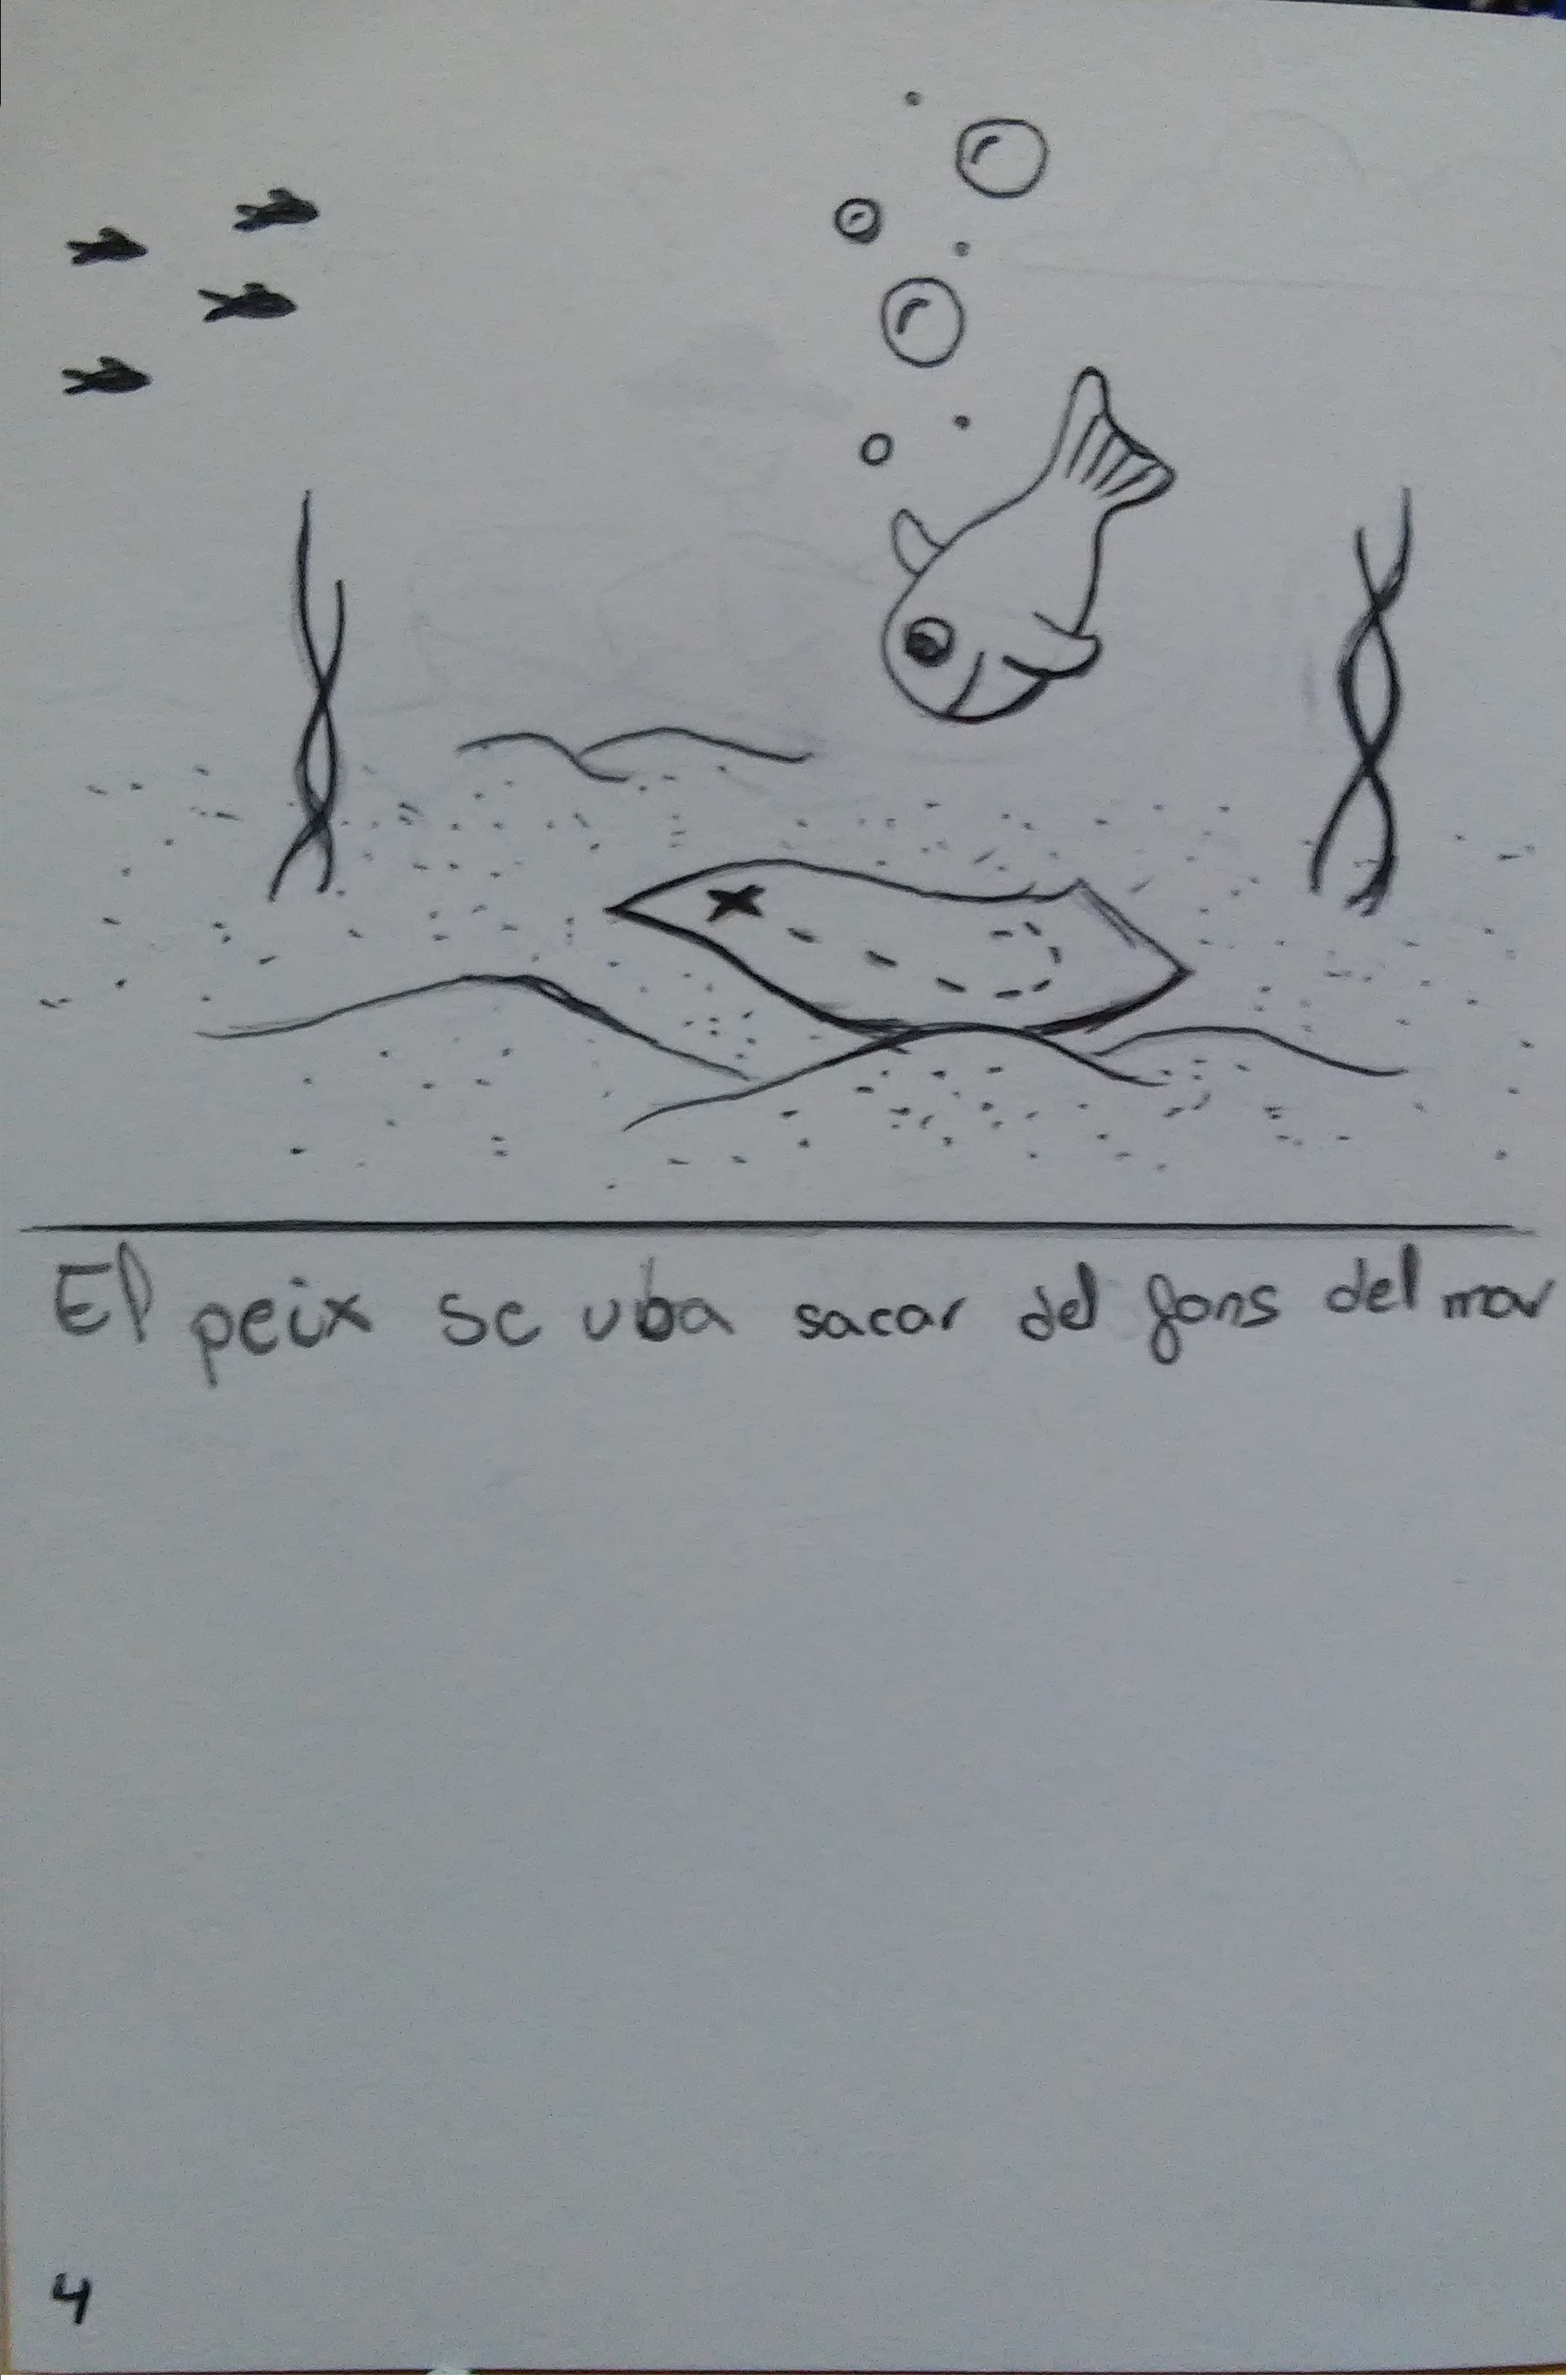 El peix se uba sacar del fons del mar
4